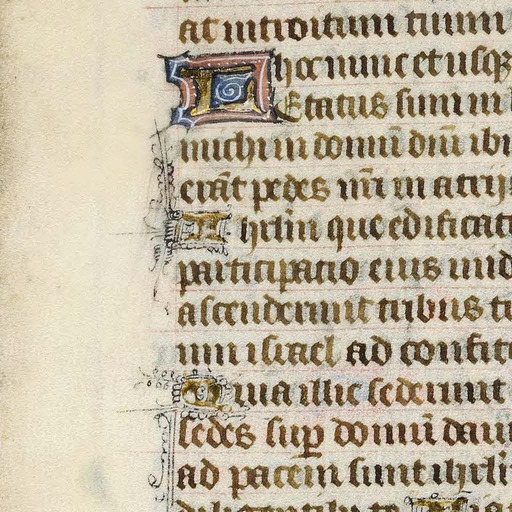 at introitum tuum
hoc nunc et usq
Letatus sum in
michi in domū dnī ibi
erāt pedes nrī in atrijs
Ihrlm que edificat
participatio eius in id
ascenderunt tribus tr
um israel ad confite
Quia illic sederunt
sedes sup domū daui
ad pacem sunt ihrl
diligentib te